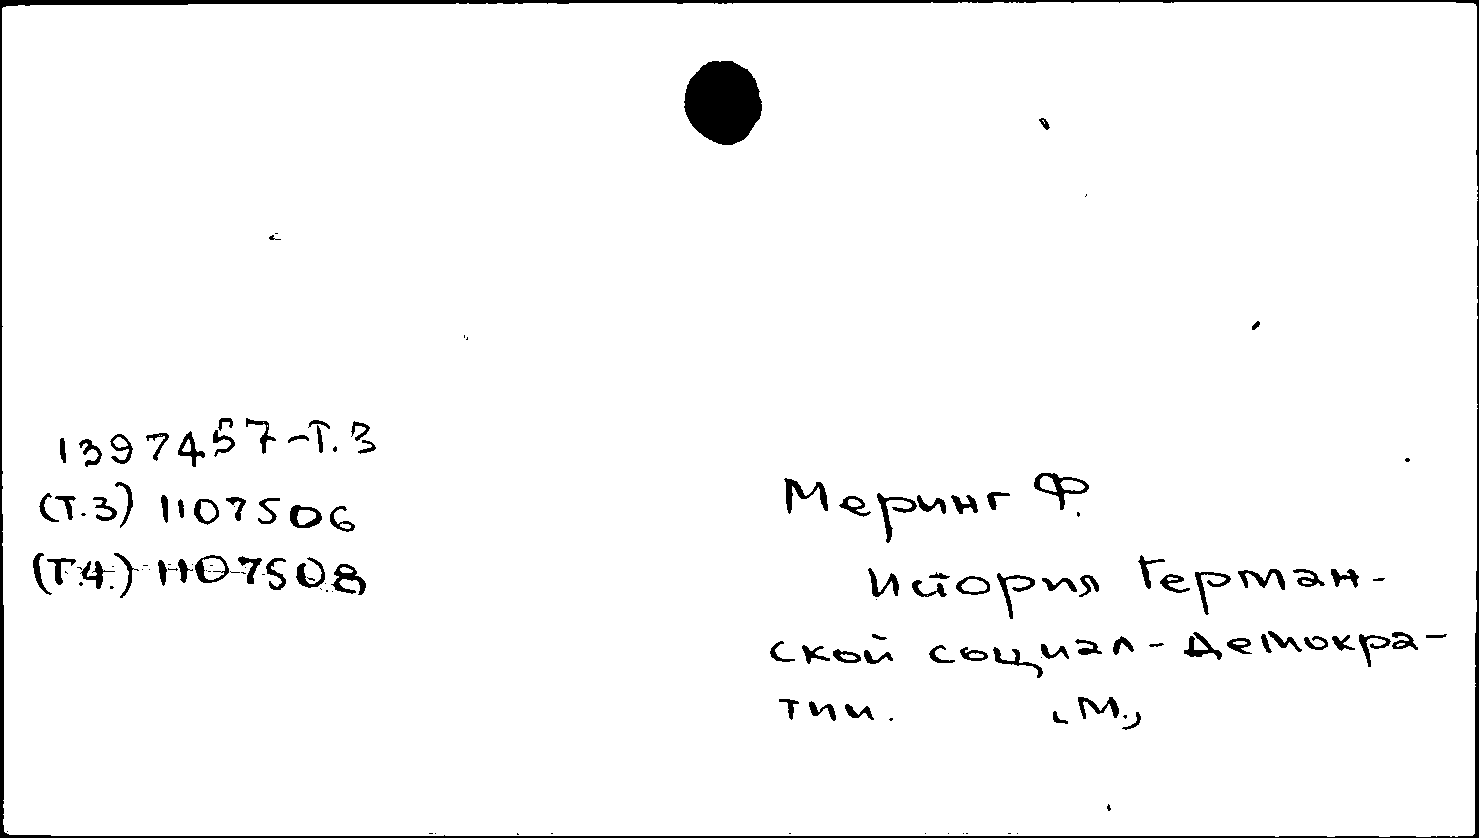 1397457-Т.3
(Т.3) 1107506
(Т.4.) 1107508
Меринг Ф.
История Герман-
ской социал-демокра-
тии. (М.,